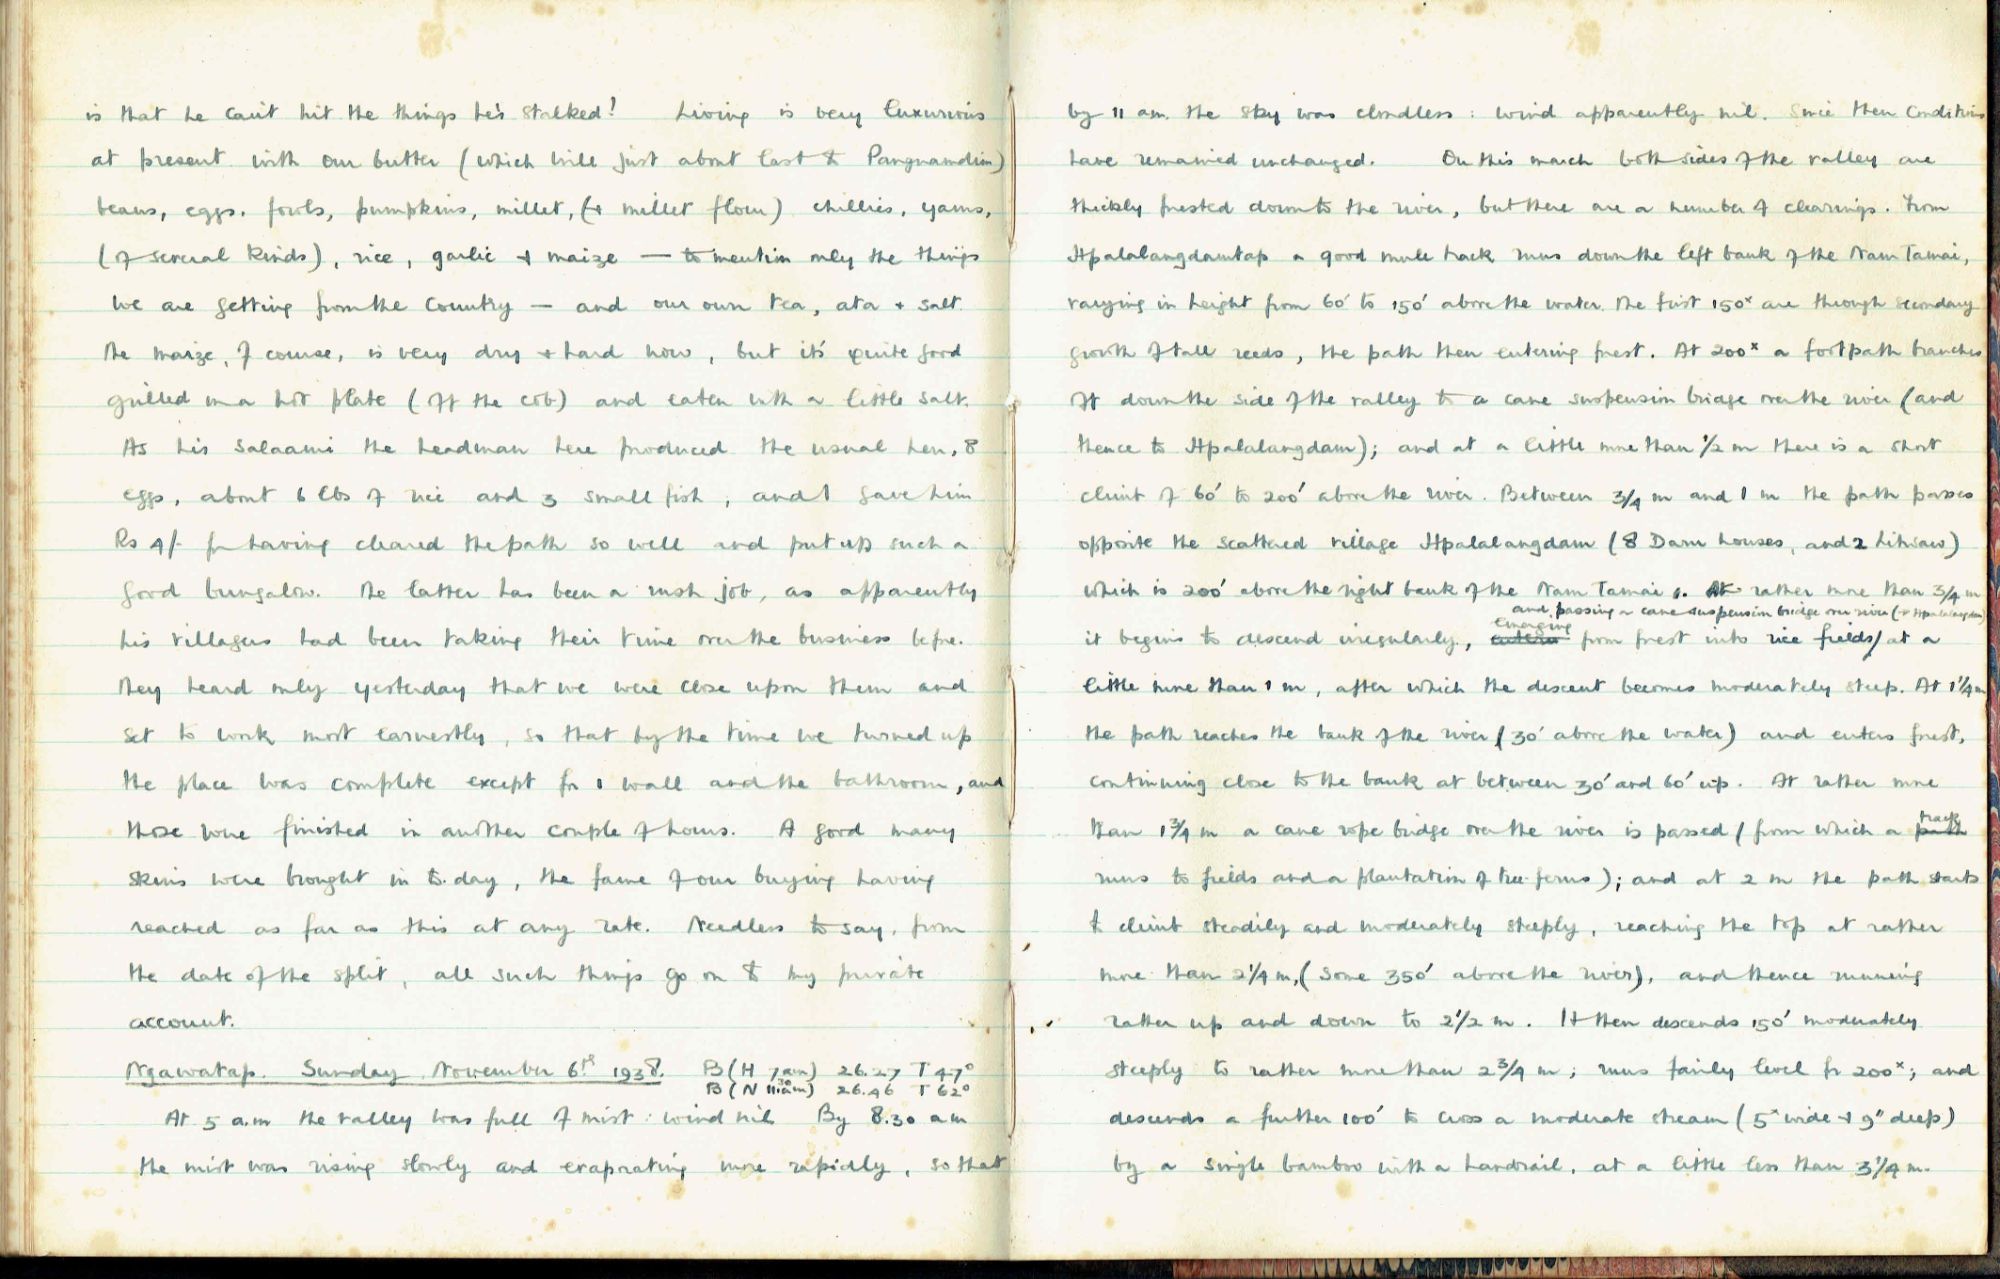 is that he can't hit the things he's stalked! Living is very luxurious
at present with our butter (which will just about last to Pangnamdim)
beans, eggs, fowls, pumpkins, millet, (+ millet flour) chillies, yams,
(of several kinds), rice, garlic + maize — to mention only the things
we are getting from the country — and our own tea, ata + salt.
The maize, of course, is very dry + hard now, but it's quite good
grilled on a hot plate (off the cob) and eaten with a little salt.
As his salaami the headman here produced the usual hen, 8
eggs, about 6 lbs of rice and 3 small fish, and I gave him
Rs 4/- for having cleared the path so well and put up such a
good bungalow. The latter has been a rush job, as apparently
his villagers had been taking their time over the business before.
They heard only yesterday that we were close upon them and
set to work most earnestly, so that by the time we turned up
the place was complete except for 1 wall and the bathroom, and
those were finished in another couple of hours. A good many
skins were brought in to-day, the fame of our buying having
reached as far as this at any rate. Needless to say, from
the date of the split, all such things go on to my private
account.
Ngawatap. Sunday November 6th 1938. B (H 7am) 26.27 T 47°
B (N 11.30am) 26.46 T 62°
At 5 a.m the valley was full of mist : wind nil By 8.30 am
the mist was rising slowly and evaporating more rapidly, so that
by 11 am. the sky was cloudless : wind apparently nil. Since then conditions
have remained unchanged. On this march both sides of the valley are
thickly forested down to the river, but there are a number of clearings. From
Hpalalangdamtap a good mule track runs down the left bank of the Nam Tamai,
varying in height from 60' to 150' above the water. The first 150x are through secondary
growth of tall reeds, the path then entering forest. At 200x a footpath branches
off down the side of the valley to a cane suspension bridge over the river (and
thence to Hpalalangdam); and at a little more than 1/2 m there is a short
climb of 60' to 200' above the river. Between 3/4 m and 1 m the path passes
opposite the scattered village Hpalalangdam (8 Daru houses, and 2 Lihsaw)
which is 200' above the right bank of the Nam Tamai. At rather more than 3/4 m
and passing a cane suspension bridge over river (to Hpalalangdam)
it begins to descend irregularly, emerging from forest into rice fields/ at a
little more than 1 m, after which the descent becomes moderately steep. At 1 1/4 m
the path reaches the bank of the river (30' above the water) and enters forest,
continuing close to the bank at between 30' and 60' up. At rather more
than 1 3/4 m a cane rope bridge over the river is passed (from which a track
runs to fields and a plantation of tree-ferns); and at 2 m the path starts
to climb steadily and moderately steeply, reaching the top at rather
more than 2 1/4 m, (some 350' above the river), and thence running
rather up and down to 2 1/2 m. It then descends 150' moderately
steeply to rather more than 2 3/4 m; runs fairly level for 200x; and
descends a further 100' to cross a moderate stream (5x wide + 9" deep)
by a single bamboo with a handrail, at a little less than 3 1/4 m.